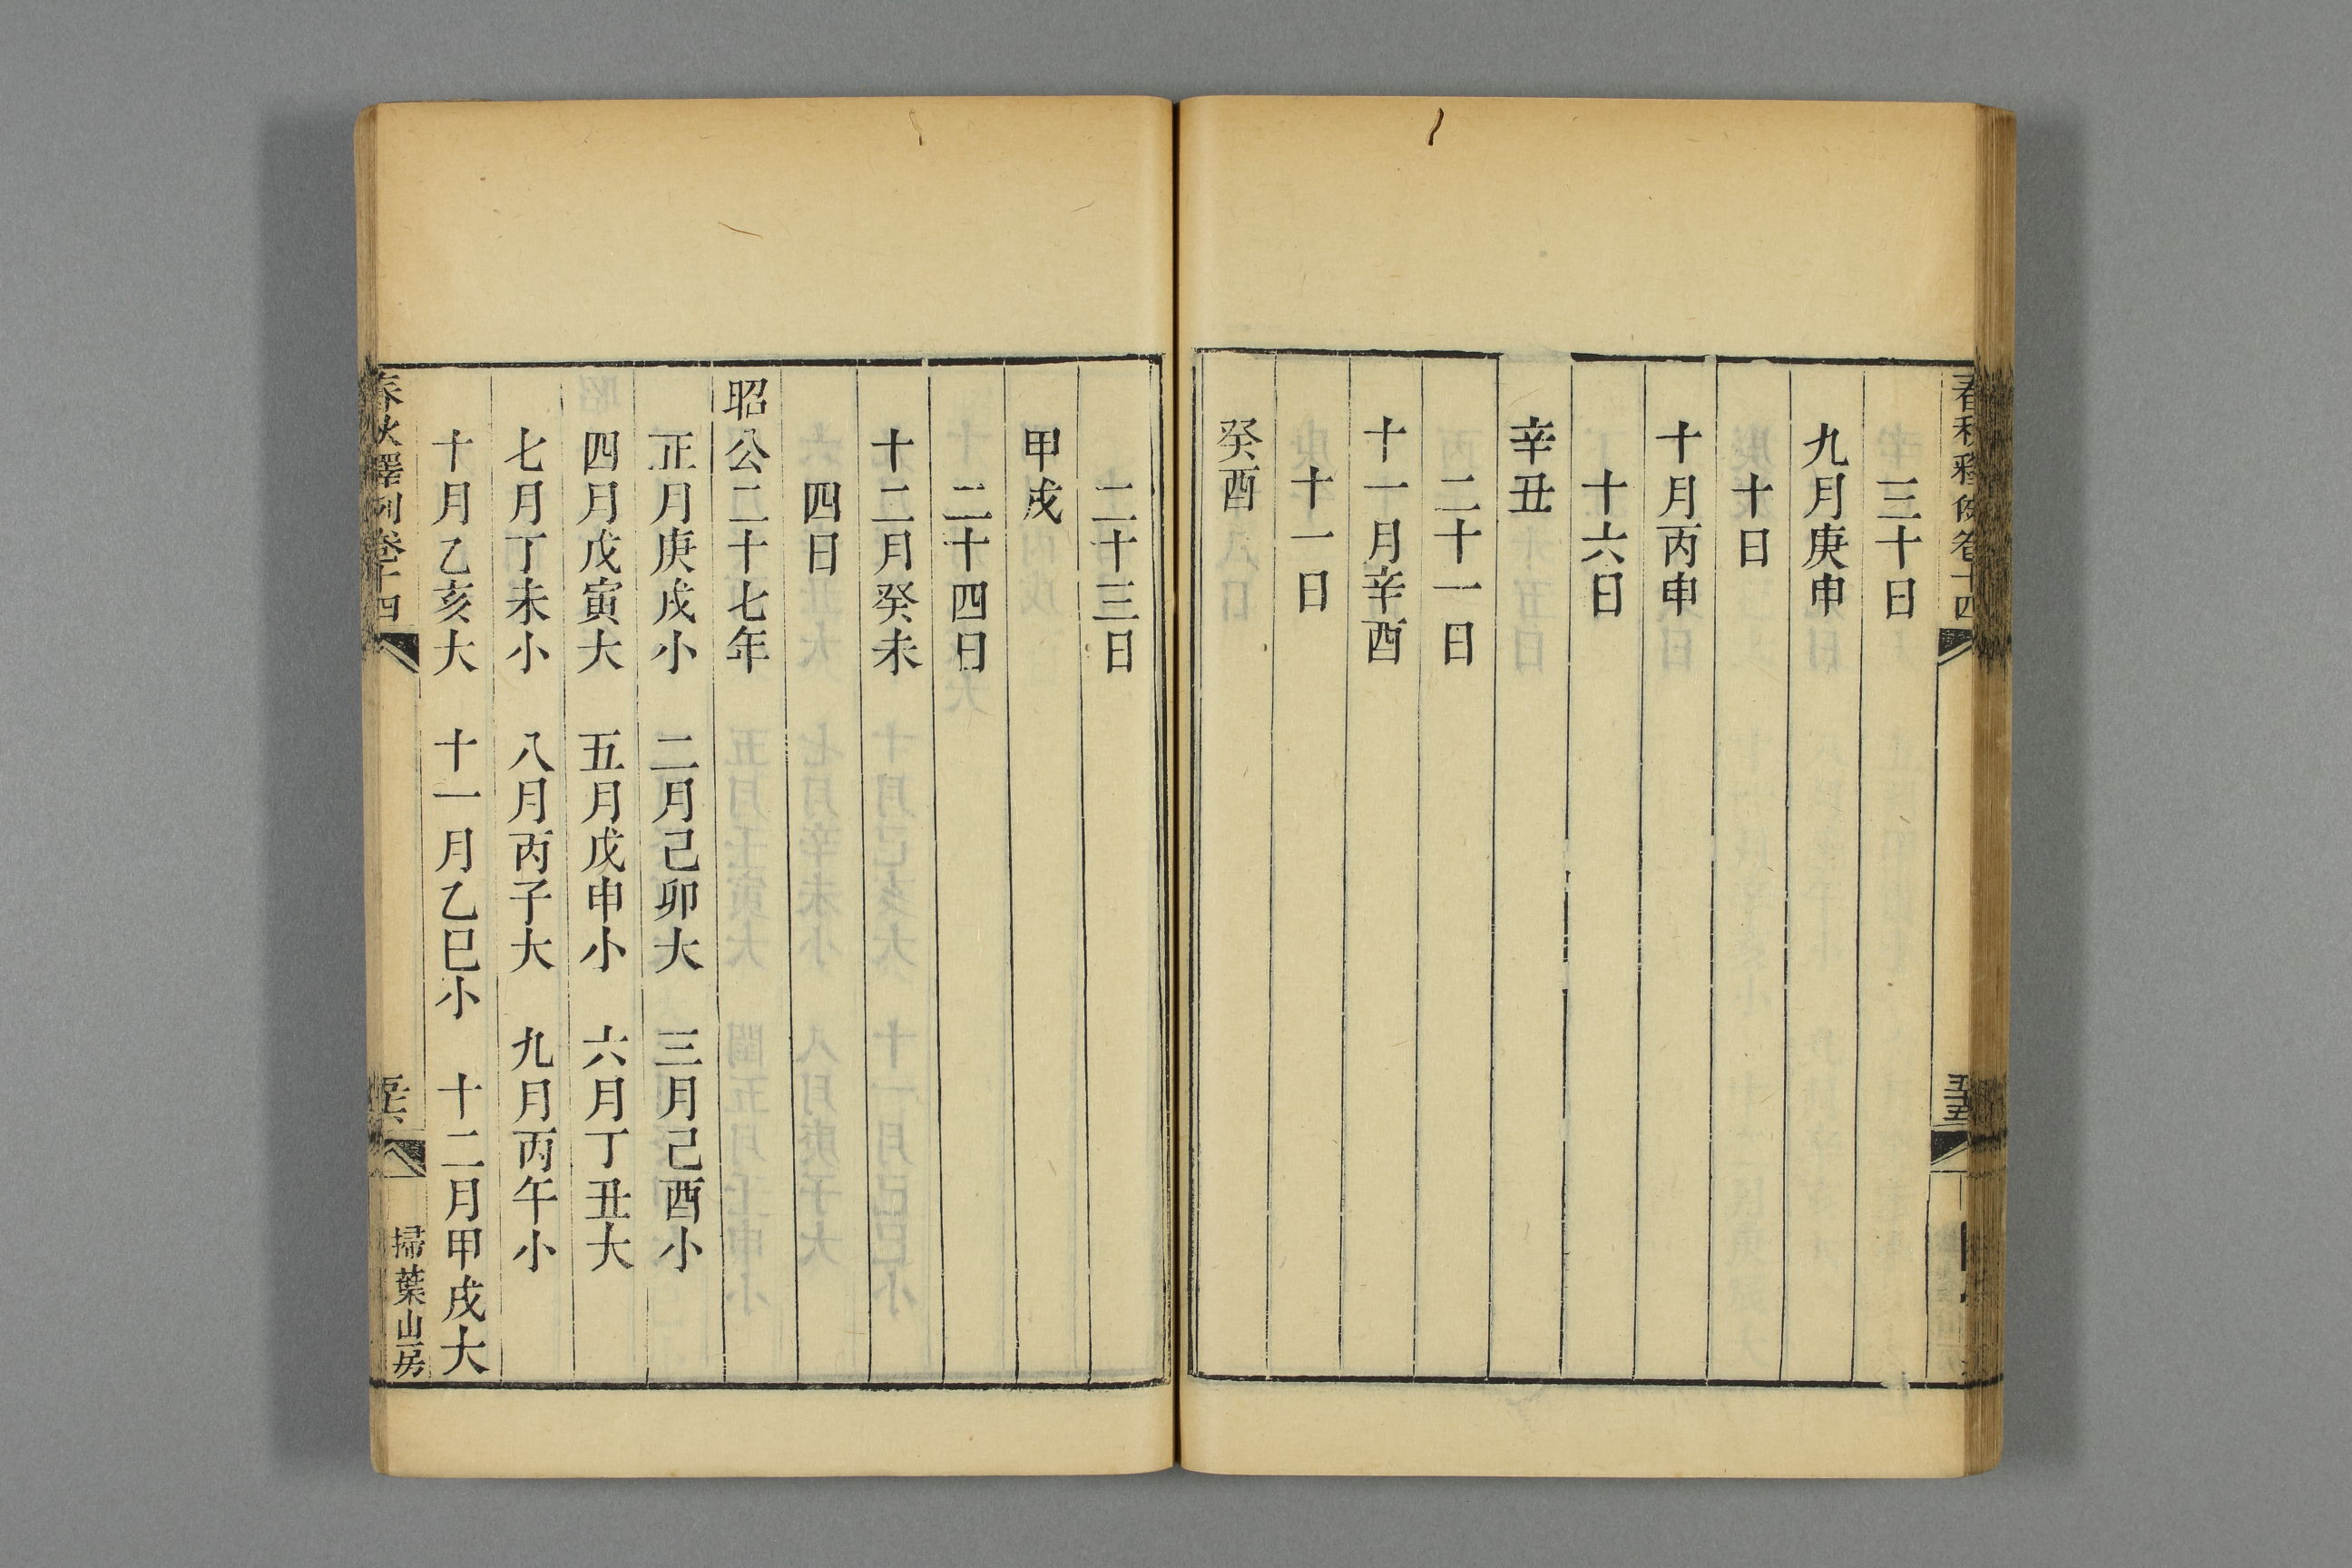 春秋釋例卷十四
五十五
三十日
九月庚申
十日
十月丙申
十六日
辛丑
二十一日
十一月辛酉
十一日
癸酉
二十三日
甲戌
二十四日
十二月癸未
四日
昭公二十七年
正月庚戌小 二月己卯大 三月己酉小
四月戊寅大 五月戊申小 六月丁丑大
七月丁未小 八月丙子大 九月丙午小
十月乙亥大 十一月乙巳小 十二月甲戌大
春秋釋例卷十四
五十六
掃葉山房